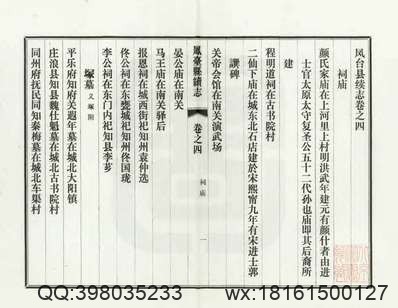 凤台县续志卷之四
祠庙
颜氏家庙在上河里上村明洪武年建元有颜什者由进
士官太原太守复圣公五十二代孙也庙即其后裔所
建
程明道祠在古书院村
二仙下庙在城东北石店建於宋熙甯九年有宋进士郭
譔碑
关帝会馆在南关演武场
鳳臺縣續志
卷之四
祠庙
一
晏公庙在南关
马王庙在南关驿后
报恩祠在城西街祀知州袁仲选
佟公祠在东甕城祀知州佟国珑
李公祠在东门内祀知县李芗
塚墓 义塚附
平乐府知府关遐年墓在城北大阳镇
庄浪县知县魏仕魁墓在城北古书院村
同州府抚民同知秦梅墓在城北车渠村
QQ:398035233
wx:18161500127